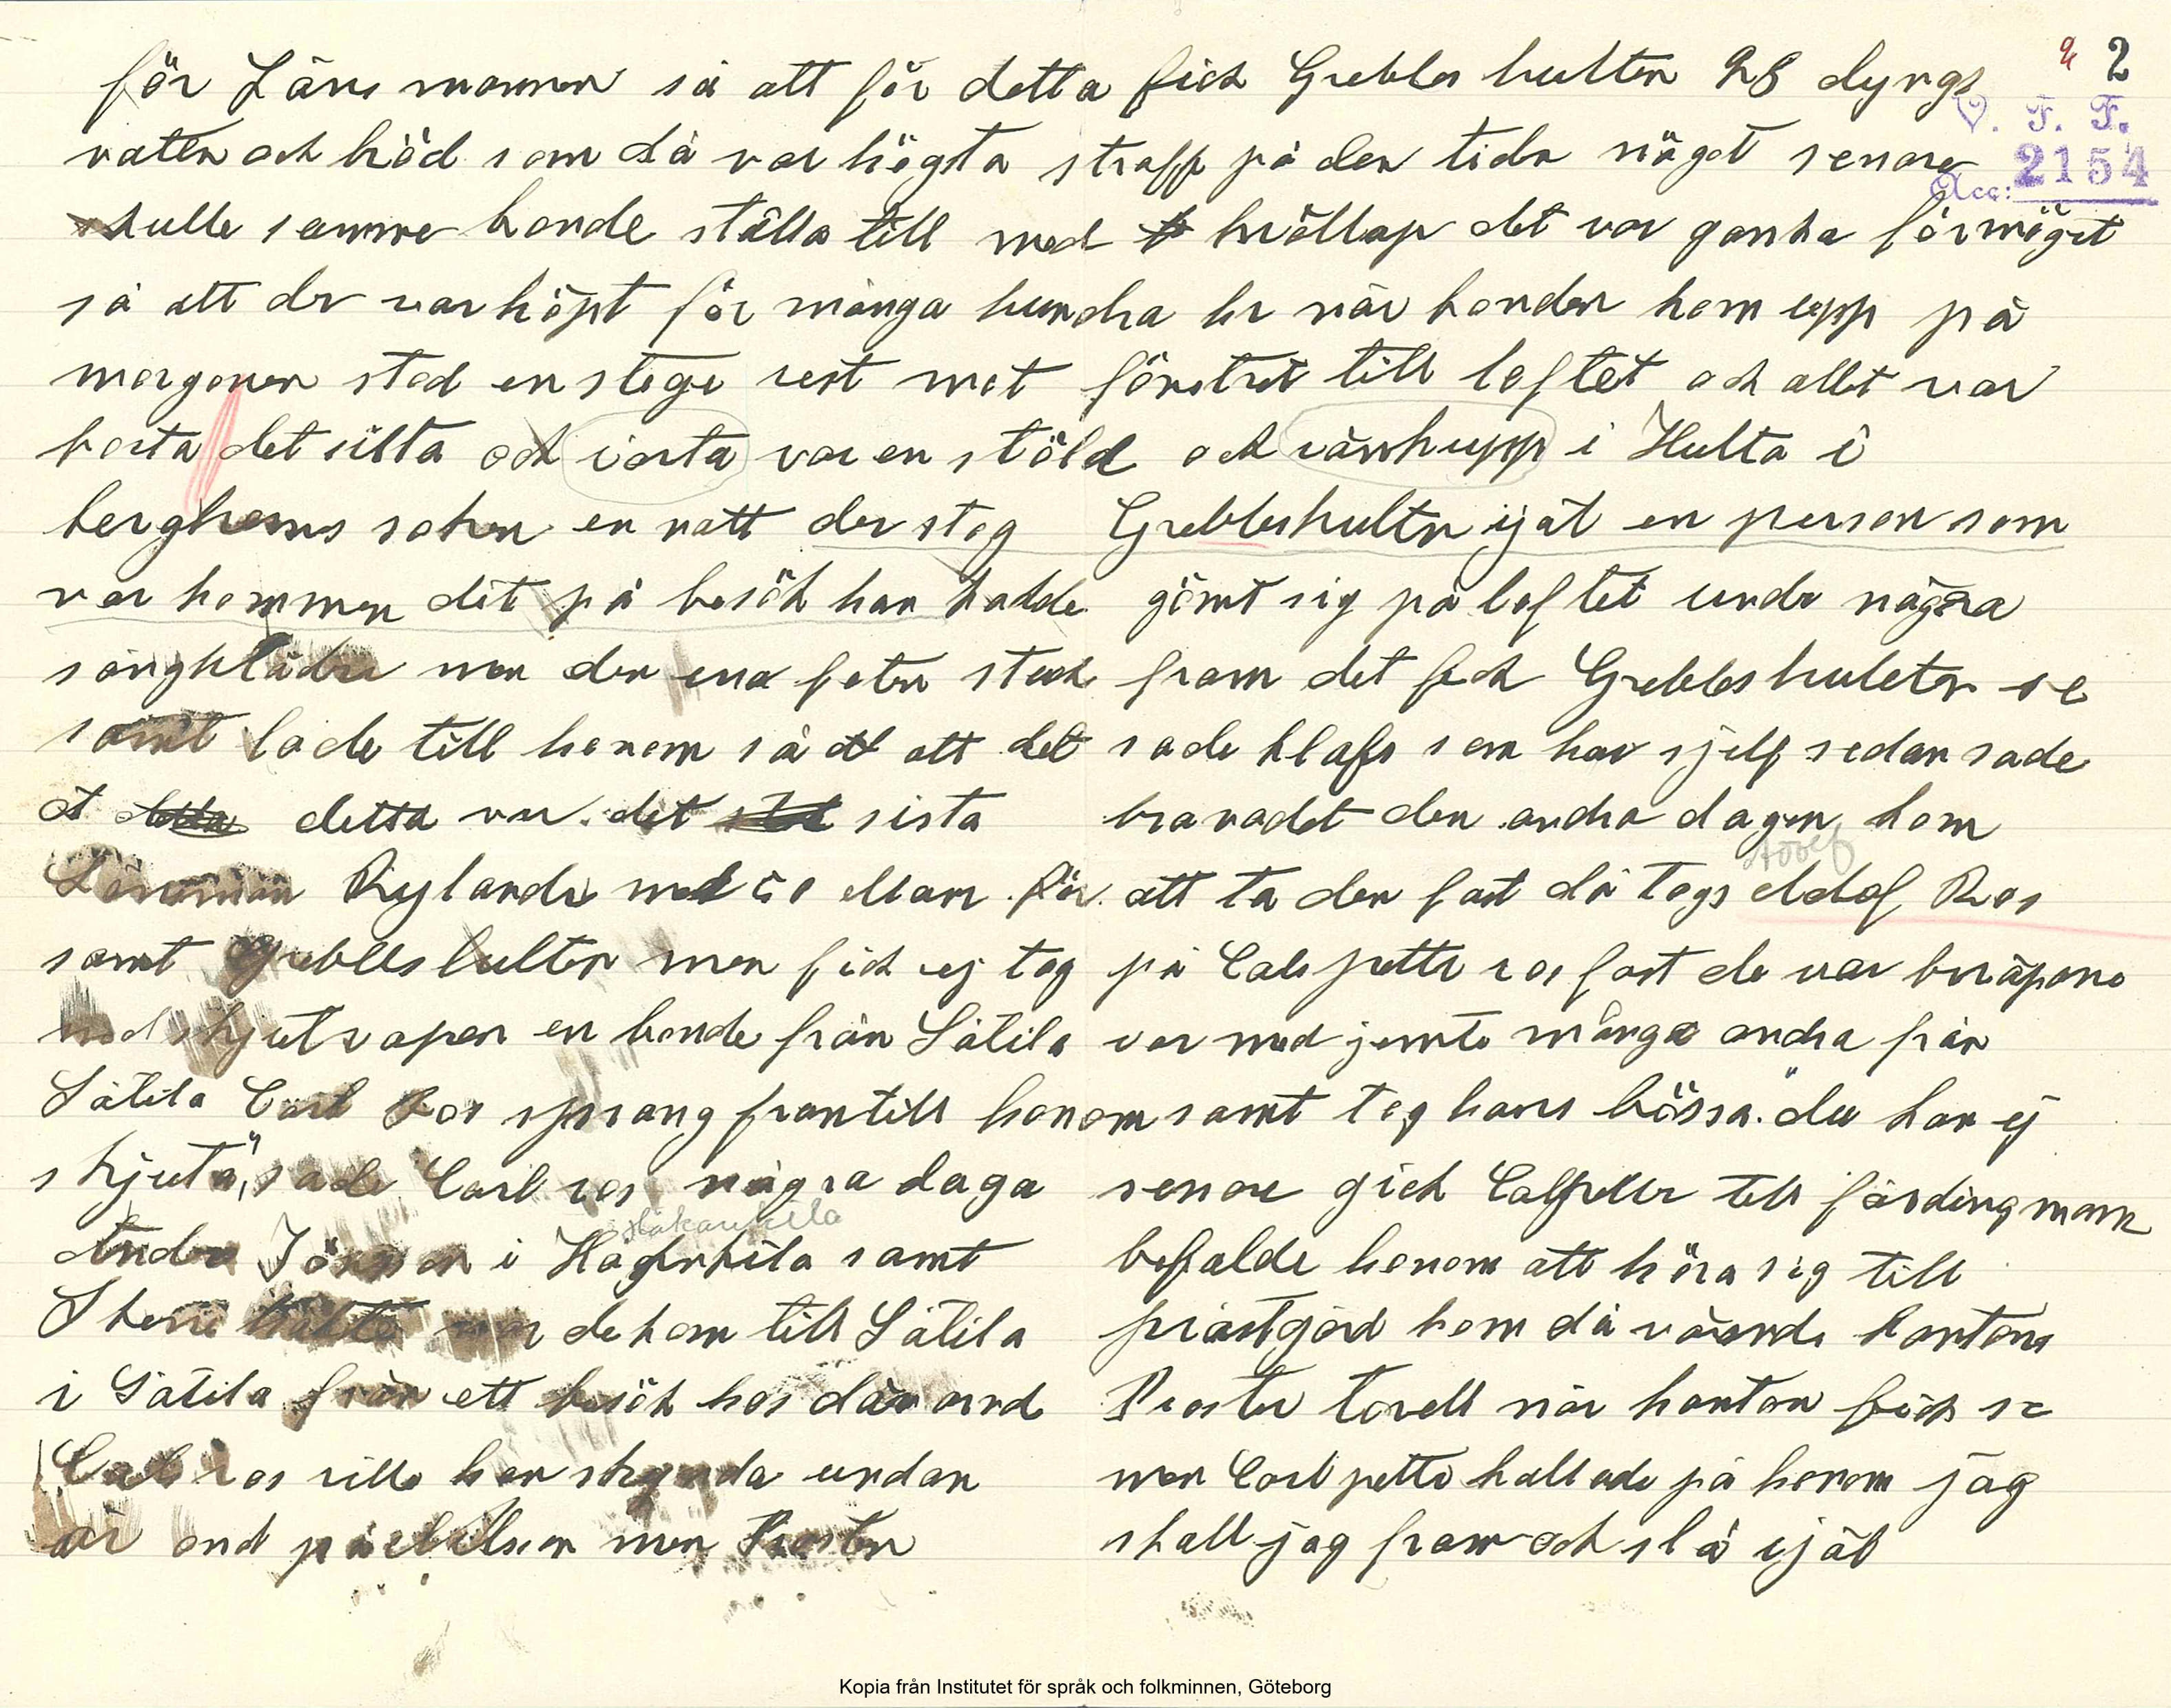 2
V. F. F.
Acc: 2154
för Länsmannen så att för detta fick Grebbeshulten 28 dyngs
vaten och bröd som då var högsta straff på den tiden något senare
skulle samme bonde ställa till med bröllop det var ganska förmöget
så att de var köpt för många hundra kr när bonden kom upp på
morgonen stod en stege rest mot fönstret till loftet och allet var
borta det sista och var en stöld och i Hulta i
berghems soken en natt der stog Grebbeshulten ijäl en person som
var kommen dit på besök han hadde gömt sig på loftet under några
sängkläder men den ena foten stack fram det fick Grebbeshulten se
samt lade till honom så att det sade klafs som han sjelf sedan sade
at detta var det sista bravadet den andra dagen kom
Adolf
Länsman Rylander med ellan för att ta den fast då togs Adolf Ros
samt Grebbeshulten men fick ej tag på Calepetter ros fast de var beväpnne
med skjutvapen en bonde från Sätila var med jemte många andra från
Sätila Carl Ros sprang fram till honom samt tog hans bössa. "du kan ej
skjuta", sade Carl ros några daga senare gick Calpetter till färdingmann
Håkankila
Andrs Jönsson i Hågenkila samt befalde honom att köra sig till
Skene när de kom till Sätila prästgård kom då varande kantons
i Sätila från ett besök hos dåvarnd Proster Torell när kanton fick se
Carl ros ville han skynda undan men Carl petter kallade på honom jag
är ond på men Prosten skall jag fram och slå ijäl
Kopia från Institutet för språk och folkminnen, Göteborg